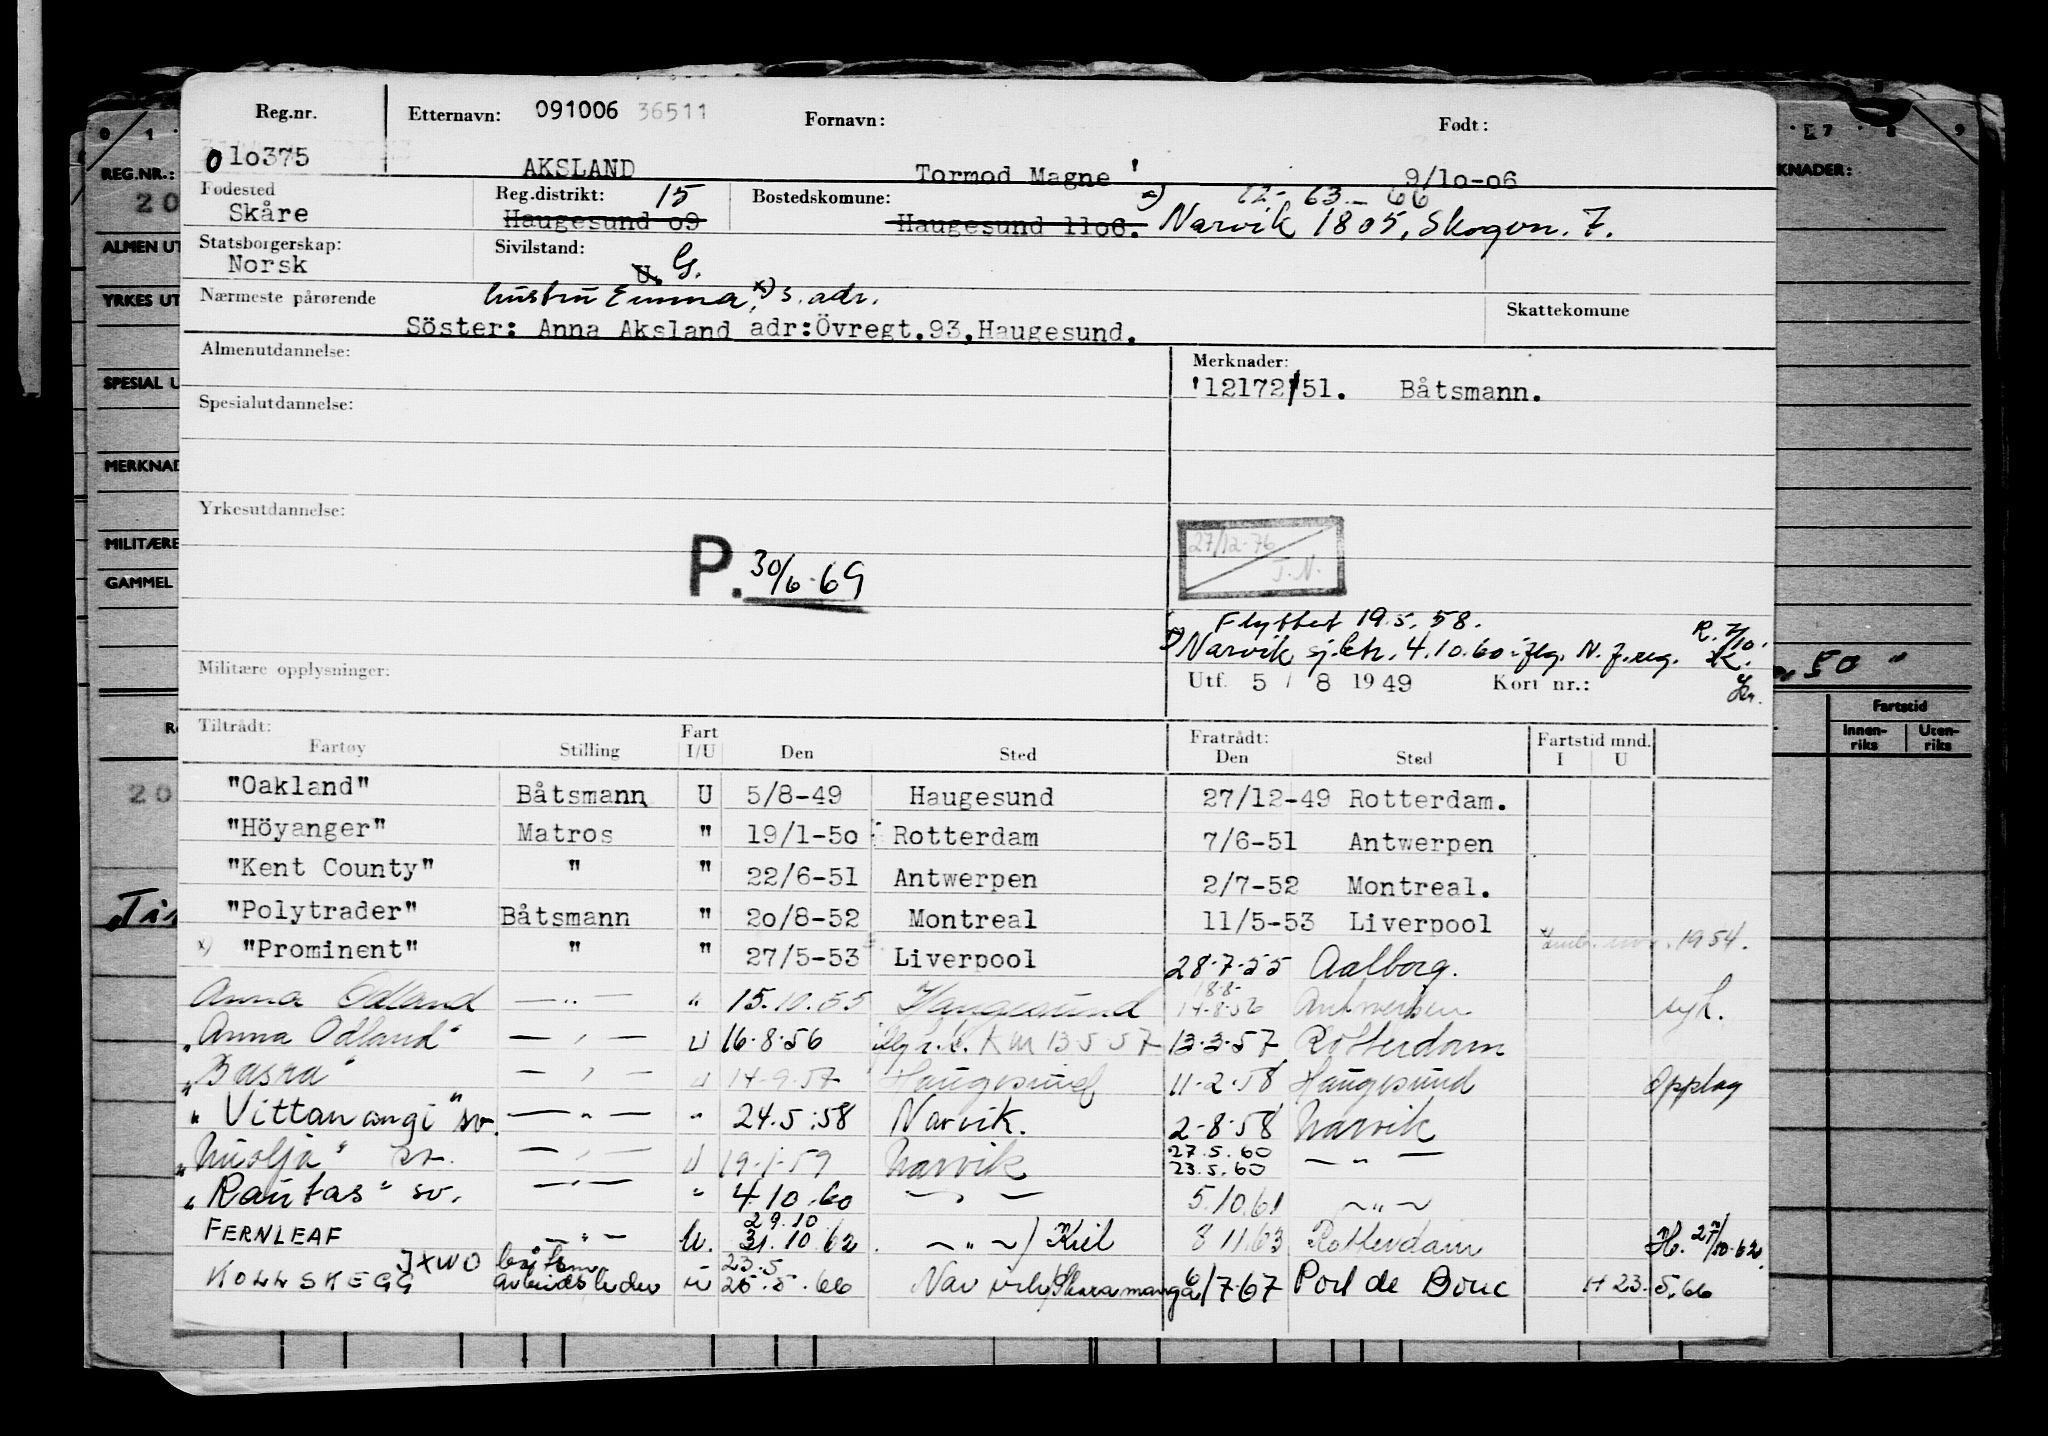 Reg.nr. Etternavn: 091006 36511 Fornavn: Født:
0 1o375 AKSLAND Tormod Magne ' 9/1o-o6
Fødested Reg.distrikt: 15 Bostedskomune: x) 12-63-66
Skåre Haugesund o9 Haugesund 11o6. Narvik 1805, Skogvn. 7.
Statsborgerskap: Sivilstand:
Norsk U. G.
Nærmeste pårørende hustru Emma, x) s. adr. Skattekomune
Söster: Anna Aksland adr:Övregt.93,Haugesund.
Almenutdannelse: Merknader:
'12172/51. Båtsmann.
Spesialutdannelse:
Yrkesutdannelse:
P. 30/6-69
27/12-76
J.N.
Flyttet 19.5.58.
x) Narvik sj.ktr. 4.10.60 iflg. N. f.reg. R. 7/10.
Militære opplysninger: Utf. 5 / 8 1949 Kort nr.:
Tiltrådt: Fart Fratrådt: Fartstid mnd.
Fartøy Stilling I/U Den Sted Den Sted I U
"Oakland" Båtsmann U 5/8-49 Haugesund 27/12-49 Rotterdam.
"Höyanger" Matros " 19/1-5o Rotterdam 7/6-51 Antwerpen
"Kent County" " " 22/6-51 Antwerpen 2/7-52 Montreal.
"Polytrader" Båtsmann " 2o/8-52 Montreal 11/5-53 Liverpool
x) "Prominent" " " 27/5-53 Liverpool 28.7.55 Aalborg. 1954.
Anna Odland — " — " 15.10.55 Haugesund 18-8- 14-8-56 Antwerpen syk.
"Anna Odland" — " — U 16.8.56 13.5.57 13.3.57 Rotterdam
"Basra" — " — U 14-9-57 Haugesund 11-2-58 Haugesund Opplag
"Vittangi" sv. — " — " 24.5.58 Narvik. 2-8-58 Narvik
"Nuolja" sv. — " — U 19-1-59 Narvik 27.5.60 23.5.60 — " —
"Rautas" sv. — " — " 4.10.60 — " — 5.10.61 — " —
FERNLEAF — " — U. 29.10 31.10.62 — " —) Kiel 8 11.63 Rotterdam H. 27/10-62
KOLLSKEGG JXWO båtsm. arbeidsleder U 23.5 25.5.66 Narvik/Skaramanga 6/7-67 Port de Bouc H 23.5.66
REG.NR.:
20
ALMEN UT
YRKES UT
SPESIAL U
MERKNAD
MILITÆRE
GAMMEL
KNADER:
50 "
Fartstid
Innen-riks Uten-riks
20